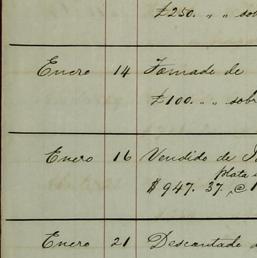 £250. " " sob
Enero 14 Tomado de
£100. " " sobr
Enero 16 Vendido de
plata
$947.37, @ 1
Enero 21 Descontado